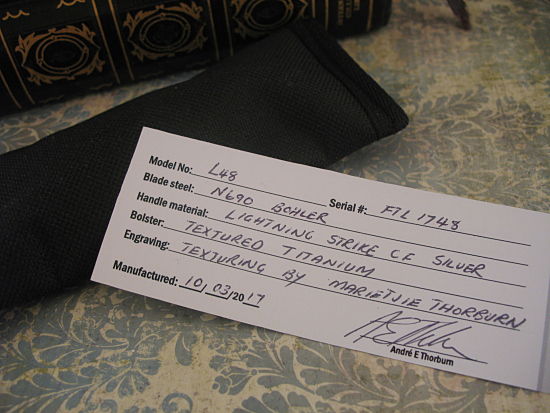 Model No: L48
Blade steel: N690 BOHLER Serial #: FTL 1748
Handle material: LIGHTNING STRIKE C.F SILVER
Bolster: TEXTURED TITANIUM
Engraving: TEXTURING BY MARIETJIE THORBURN
Manufactured: 10/03/2017
André E Thorburn